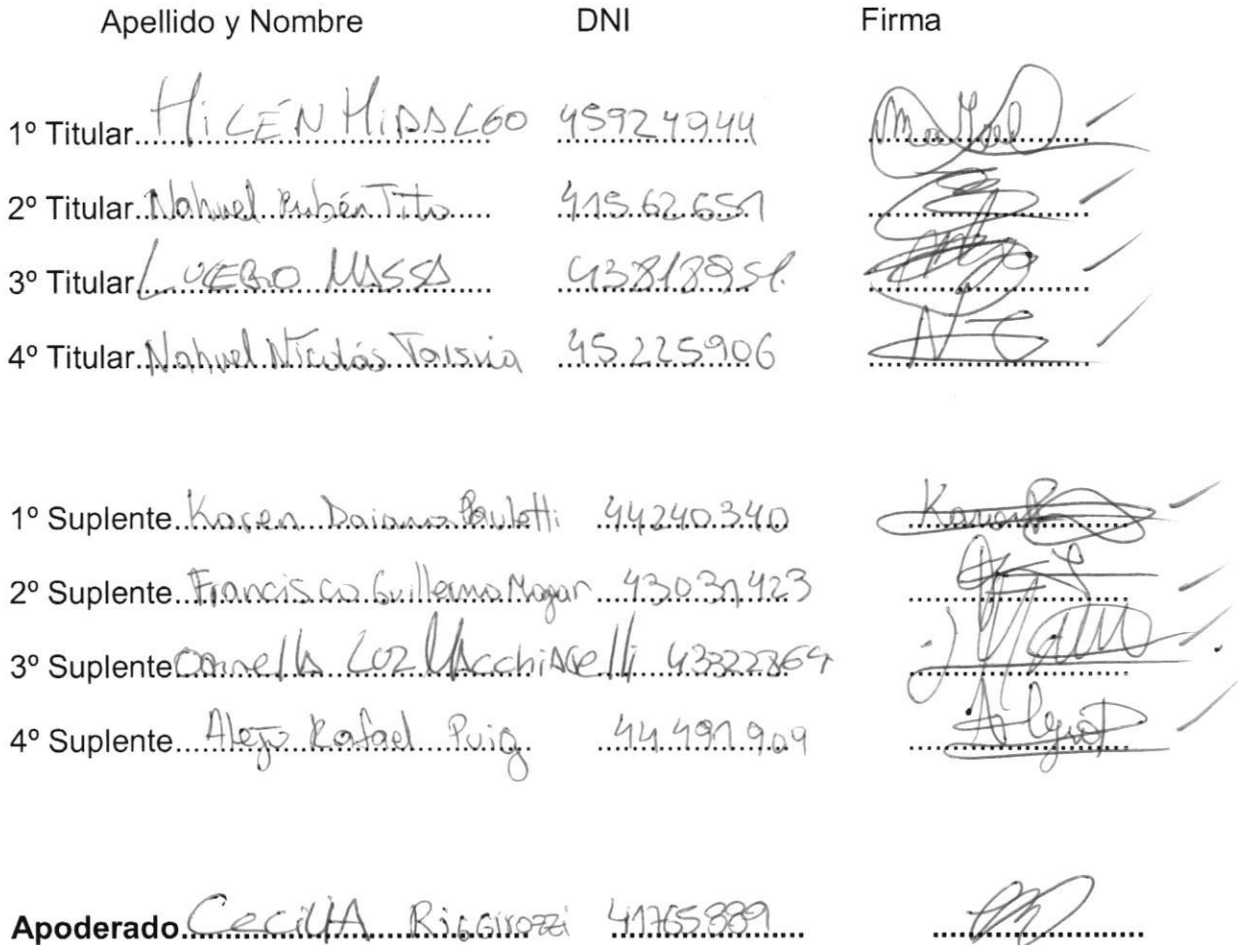 Apellido y Nombre DNI Firma
1º Titular HiLÉN HiDALGO 45924944
2º Titular Nahuel Rubén Tito 41562651
3º Titular LUCERO MASSA 43818951.
4º Titular Nahuel Nicolás 45.225906
1º Suplente Karen Daiana Pauletti 44240.340 Karen
2º Suplente Francisco Guillermo Magar 43031423
3º Suplente Ornella LUZ 43322864
4º Suplente Alejo Rafael Puig 44.491.909 AlejoP
Apoderado CeciliA RiGGirozzi 41765889